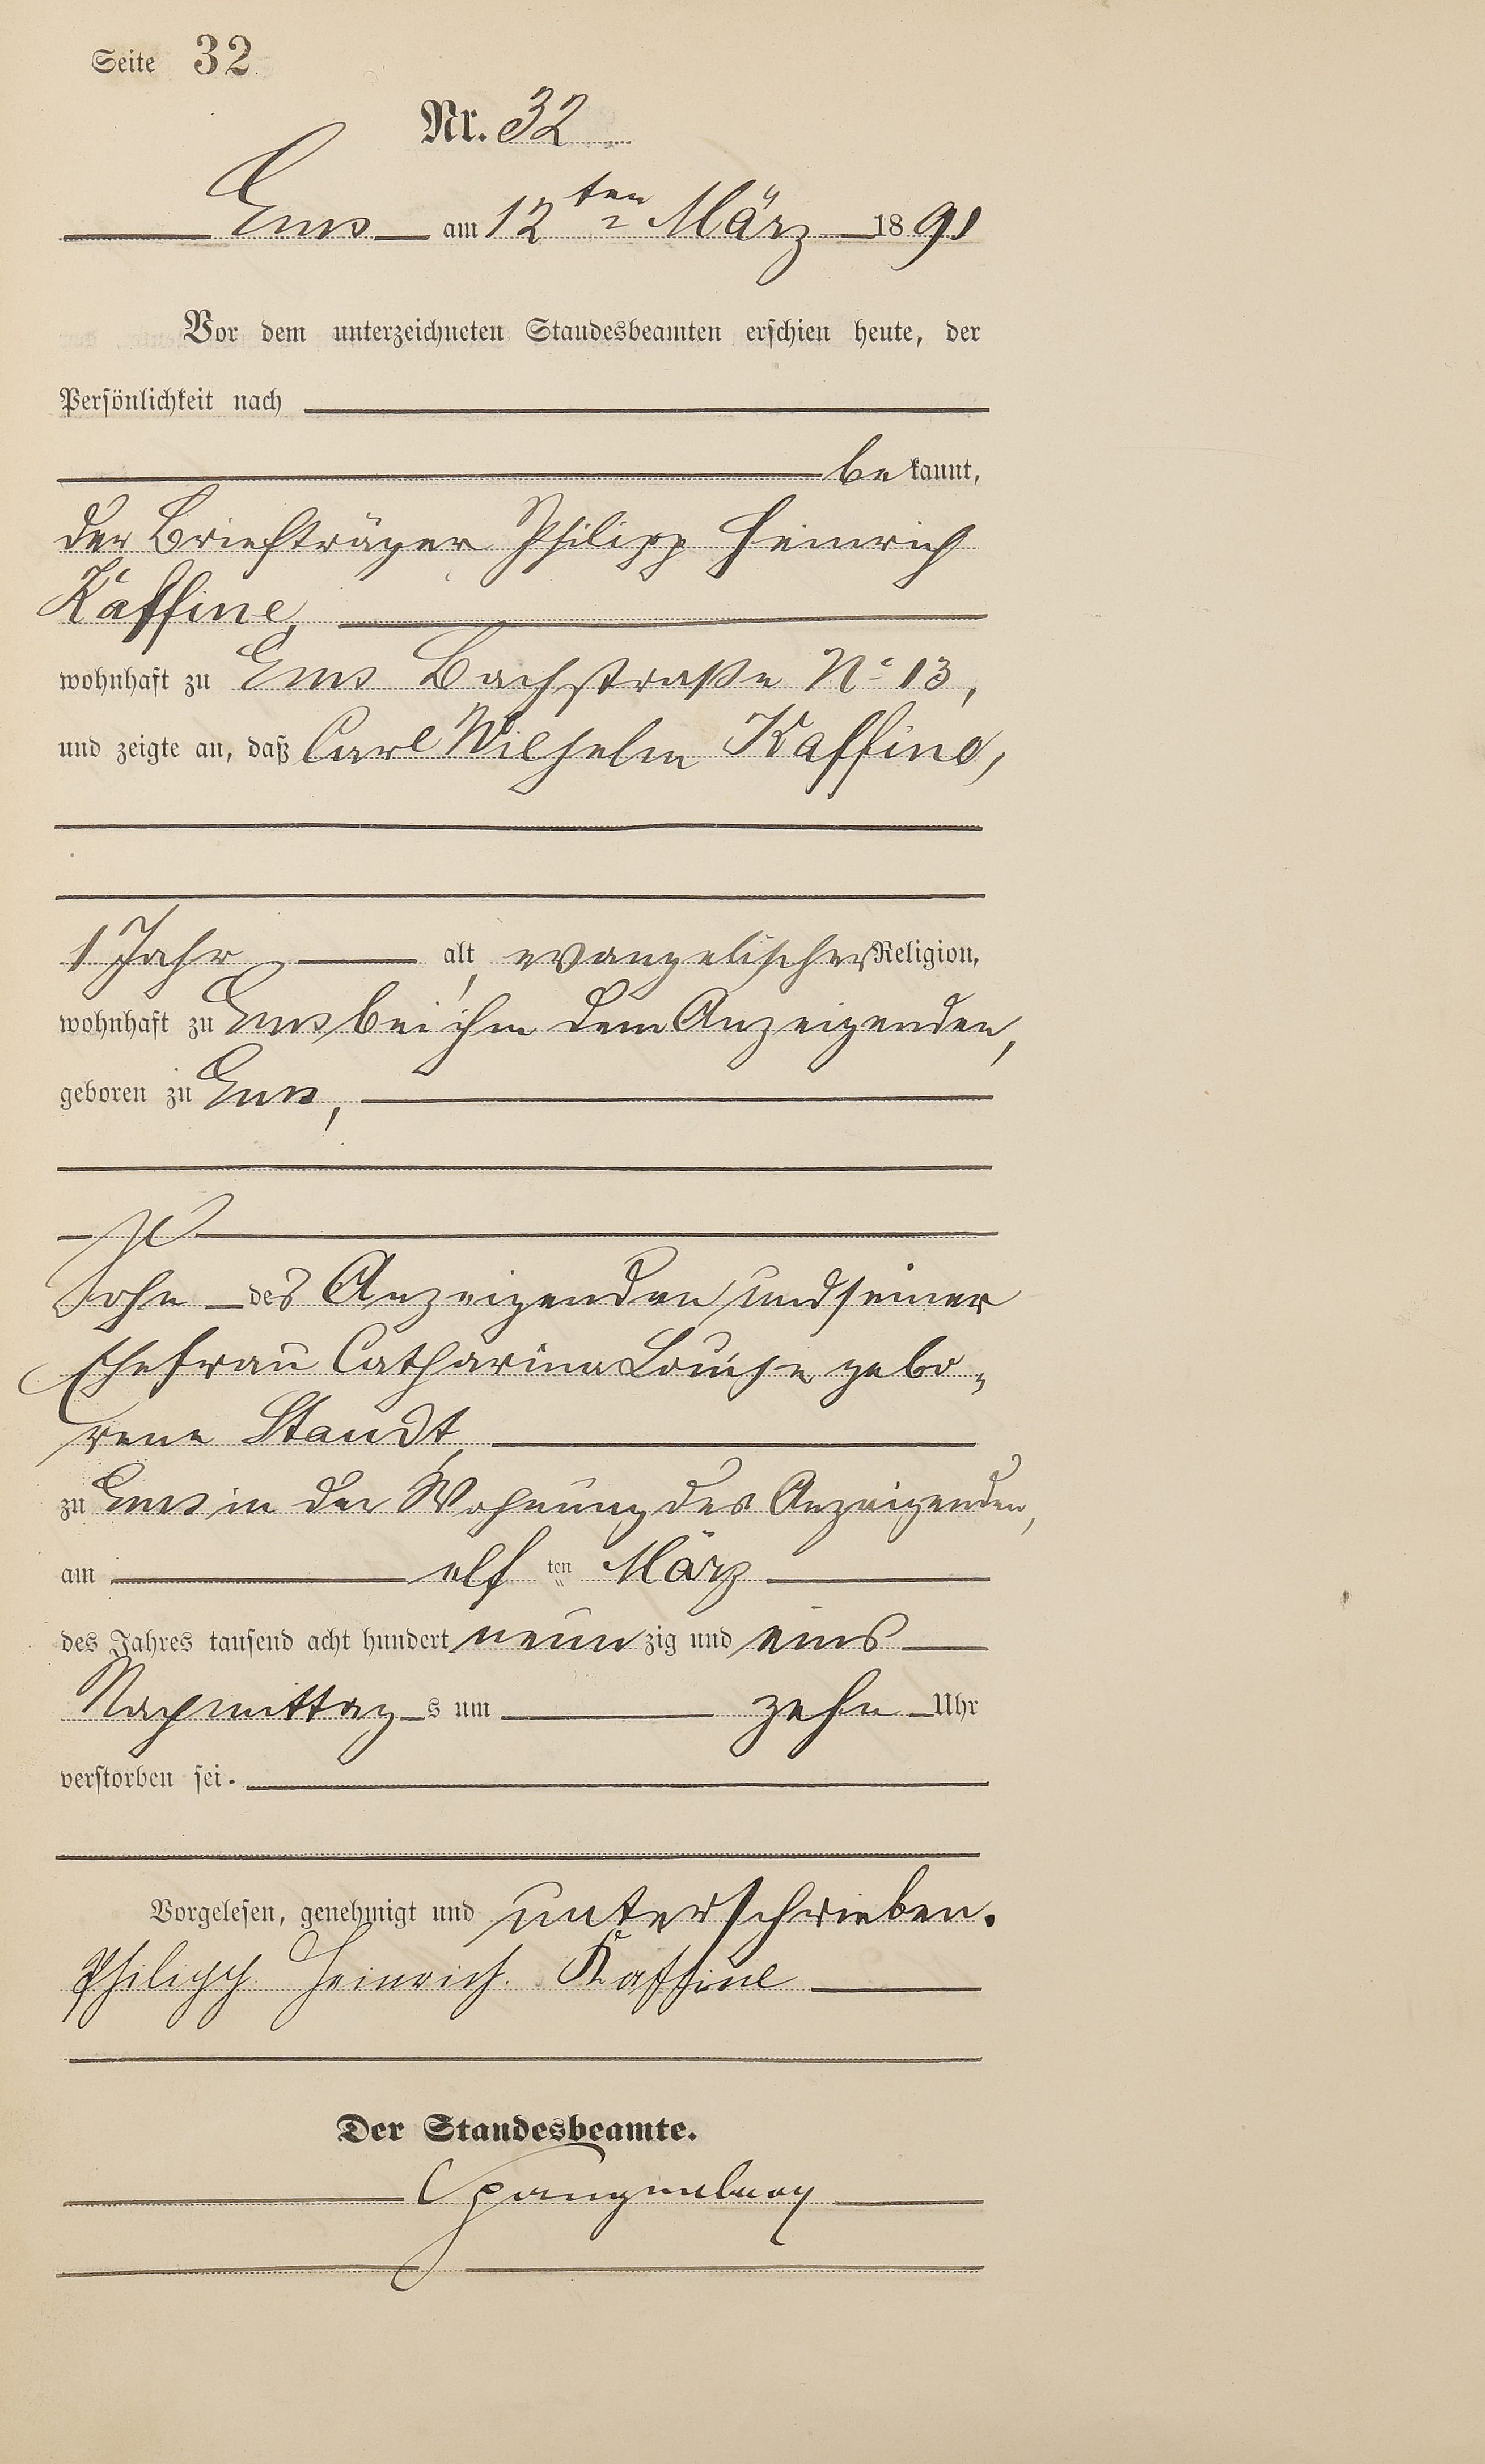 Seite 32
Nr. 32
Ems am 12ten März 1891
Vor dem unterzeichneten Standesbeamten erschien heute, der
Persönlichkeit nach
bekannt,
der Briefträger Philipp Heinrich
Kaffine,
wohnhaft zu Ems Bachstraße No 13,
und zeigte an, daß Carl Wilhelm Kaffine,
1 Jahr alt, evangelischer Religion,
wohnhaft zu Ems bei ihm dem Anzeigenden,
geboren zu Ems,
Sohn des Anzeigenden und seiner
Ehefrau Catharina Louise gebo-
rene Staudt,
zu Ems in der Wohnung des Anzeigenden,
am elf ten März
des Jahres tausend acht hundert neunzig und eins
Nachmittags um zehn Uhr
verstorben sei.
Vorgelesen, genehmigt und unterschrieben.
Philipp Heinrich Kaffine
Der Standesbeamte.
Spangenberg